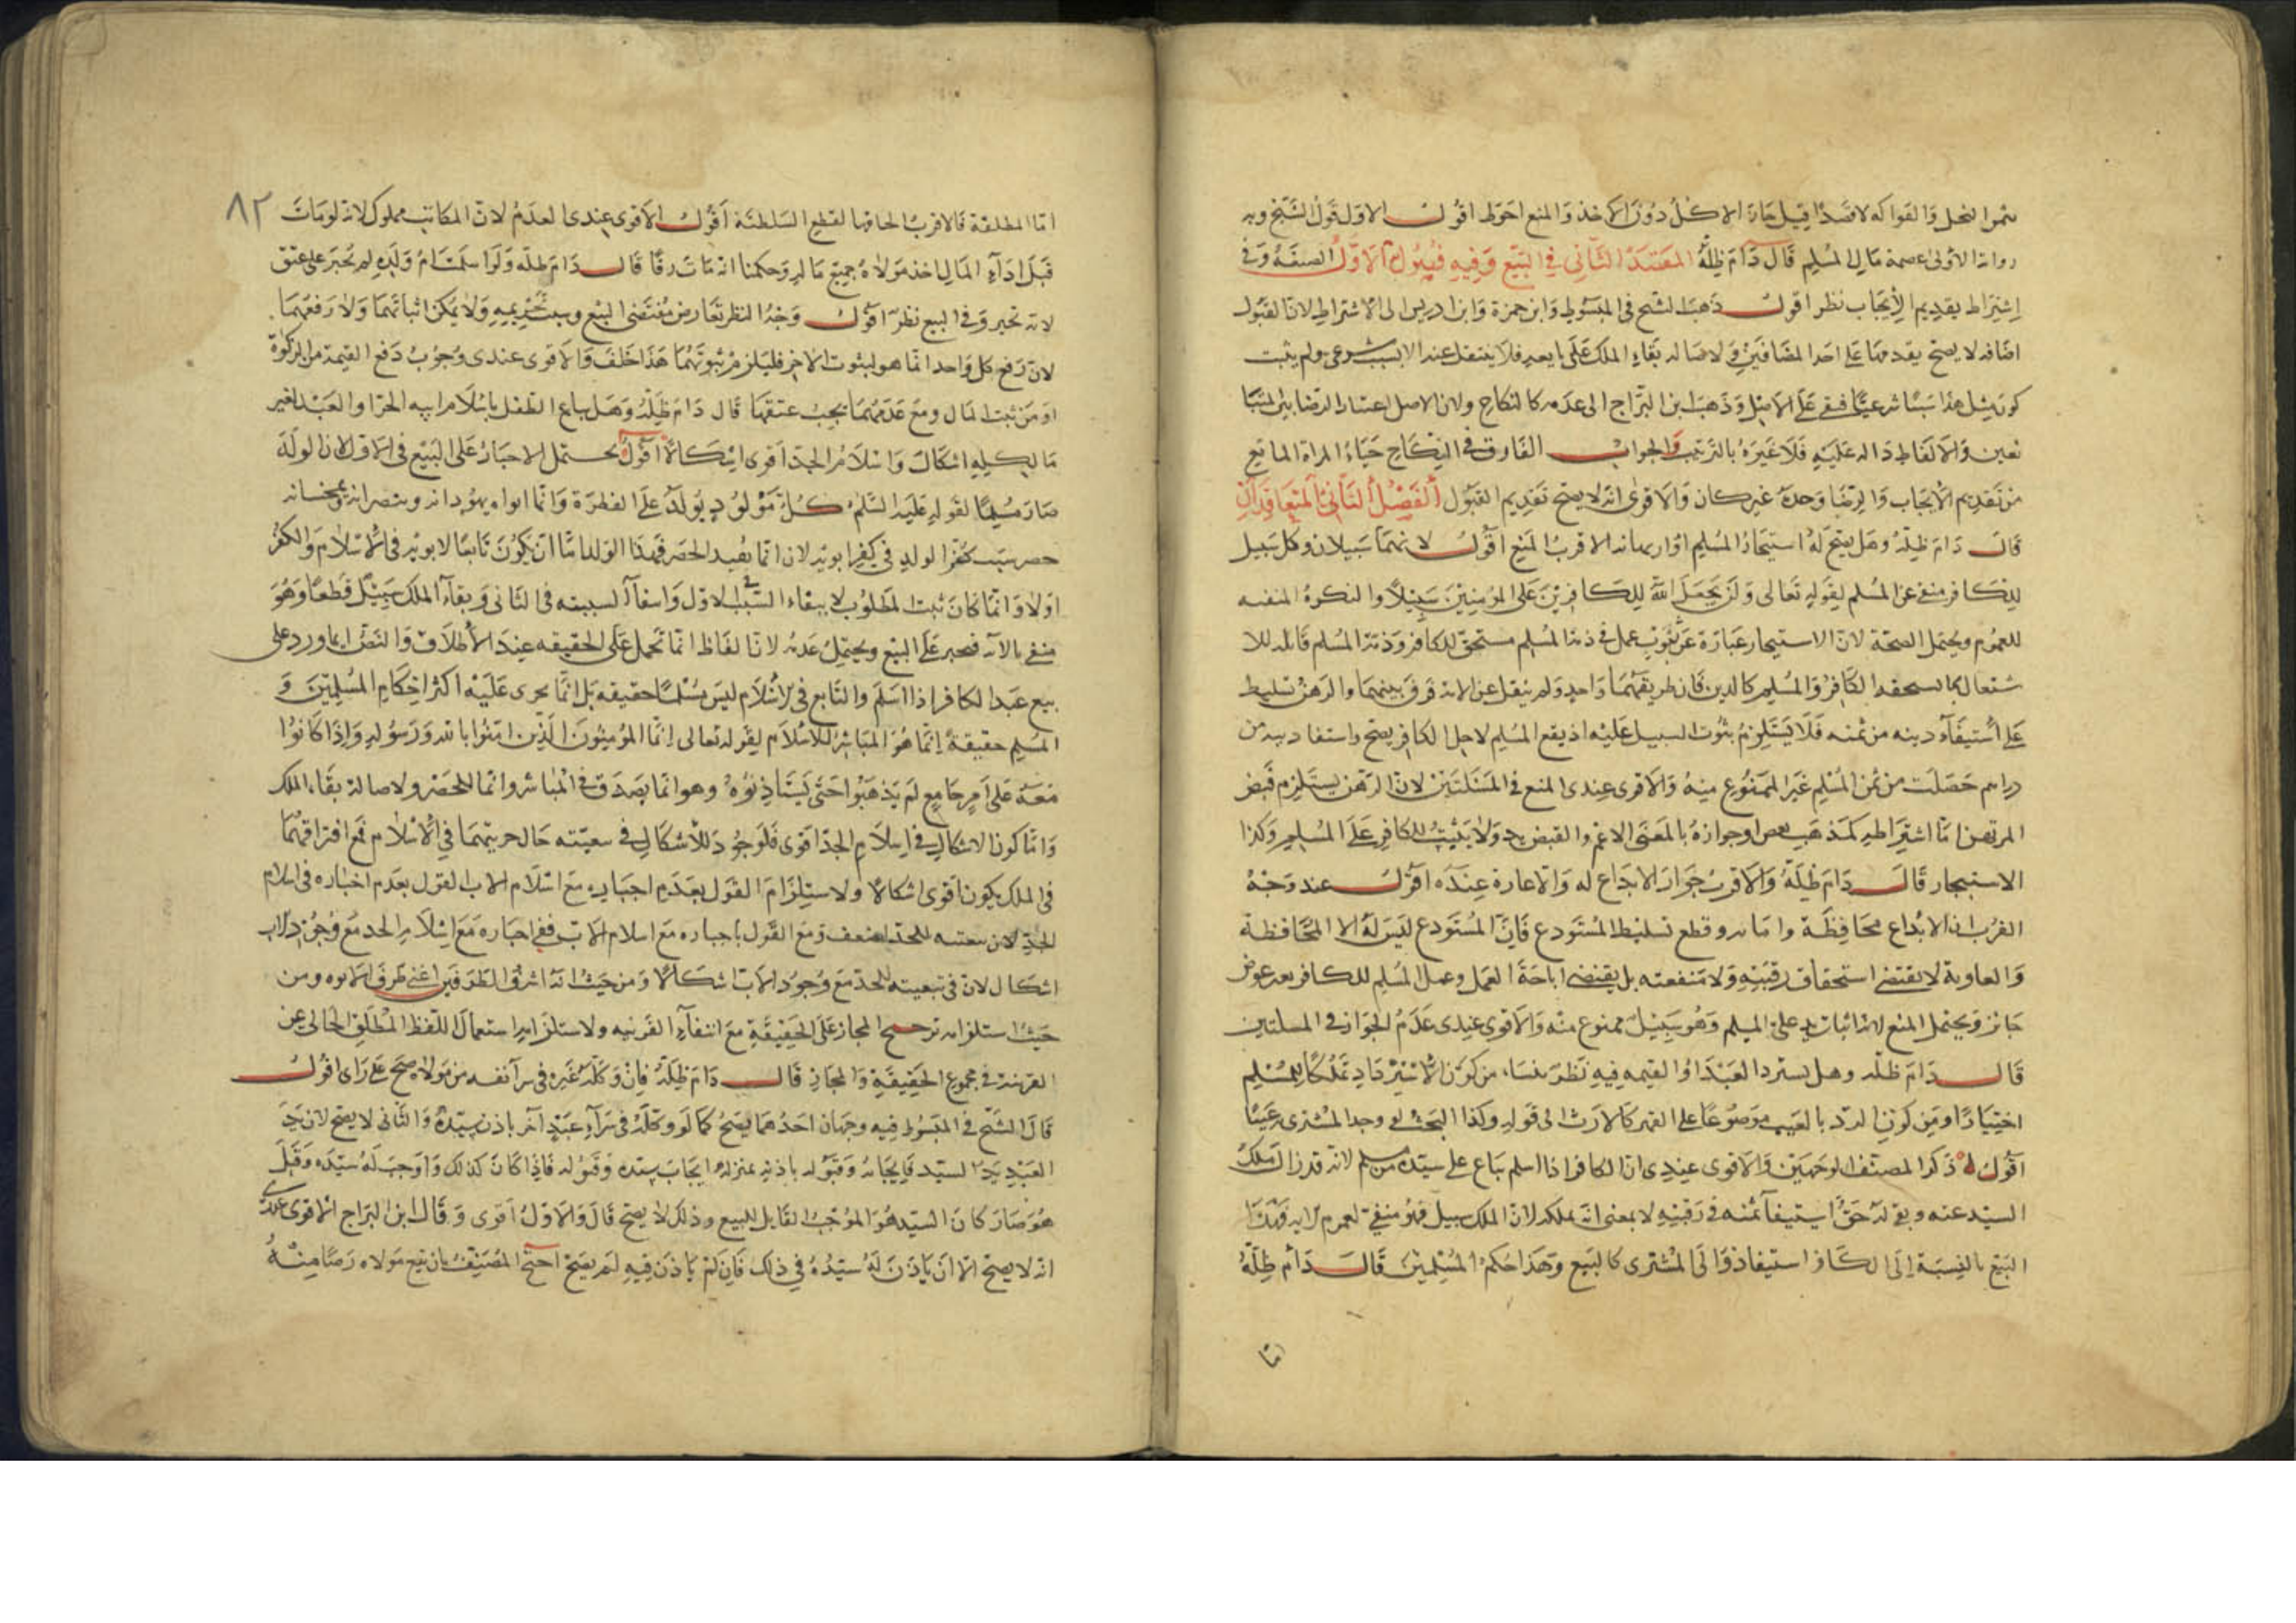 بثمر النخل والفواكه لا قصدا قيل جاز الاكل دون الاخذ والمنع احوط اقول الاول قول الشيخ وبه
رواية الاولى عصمة مال المسلم قال دام ظله المقصد الثاني في البيع وفيه فصول الاول الصيغة وفي
اشتراط تقديم الايجاب نظر اقول ذهب الشيخ في المبسوط وابن حمزة وابن ادريس الى الاشتراط لان القبول
اضافة لا يصح تقدمها على احد المضافين ولاصالة بقاء الملك على بايعه فلا ينتقل عنه الا بسبب شرعي ولم يثبت
كون مثل هذا سببا شرعيا فبقي على الاصل وذهب ابن البراج الى عدمه كالنكاح ولان الاصل اعتبار الرضا بين المتبا
يعين والالفاظ دالة عليه فلا عبرة بالترتيب والجواب الفارق في النكاح حياء المراة المانع
من تقديم الايجاب والرضا وحده غير كاف والاقوى انه لا يصح تقديم القبول الفصل الثاني المتعاقدان
قال دام ظله وهل يصح له استيجار المسلم او ارتهانه الاقرب المنع اقول لانهما سبيلان وكل سبيل
للكافر منفي عن المسلم لقوله تعالى ولن يجعل الله للكافرين على المؤمنين سبيلا والنكرة المنفية
للعموم ويحتمل الصحة لان الاستيجار عبارة عن ثبوت عمل في ذمة المسلم مستحق للكافر وذمة المسلم قابلة للا
شتغال بما يستحقه الكافر والمسلم كالدين فان طريقهما واحد ولم ينقل عن الامة فرق بينهما والرهن تسليط
على استيفاء دينه من ثمنه فلا يستلزم ثبوت السبيل عليه اذ بيع المسلم لاجل الكافر يصح واستفاد دينه من
دراهم حصلت من ثمن المسلم غير الممنوع منه والاقوى عندي المنع في المسئلتين لان الرهن يستلزم قبض
المرتهن اما اشتراطه كمذهب بعض او جوازه بالمعنى الاعم والقبض يد ولا يثبت للكافر على المسلم وكذا
الاستيجار قال دام ظله والاقرب جواز الايداع له والاعارة عنده اقول عند وجه
القرب ان الايداع محافظة وامانة وقطع تسليط المستودع فان المستودع ليس له الا المحافظة
والعارية لا يقتضي استحقاق رقبته ولا منفعته بل يقتضي اباحة العمل وعمل المسلم للكافر بعد عوض
جائز ويحتمل المنع لانه اثبات يد على المسلم وهو سبيل ممنوع منه والاقوى عندي عدم الجواز في المسئلتين
قال دام ظله وهل يسترد العبد او القيمة فيه نظر ينشا من كون الاسترداد تملكا للمسلم
اختيارا ومن كون الرد بالعيب موضوعا على القهر كالارث الى قوله وكذا البحث لو وجد المشتري عيبا
اقول ذكر المصنف الوجهين والاقوى عندي ان الكافر اذا اسلم يباع على سيده من مسلم لانه قد زال ملك
السيد عنه وبقي له حق استيفاء ثمنه في رقبته لا بمعنى انه يملكه لان الملك سبيل فهو منفي لعموم الاية وهذا
البيع بالنسبة الى الكافر استيفاء والى المشتري كالبيع وهذا حكم المسلمين قال دام ظله
اما
٨٢
اما المطلقة فالاقرب الحاقها لقطع السلطنة اقول الاقوى عندي العدم لان المكاتب مملوك لانه لو مات
قبل اداء المال اخذ مولاه جميع ماله وحكمنا انه مات رقا قال دام ظله ولو اسلمت ام ولده لم تجبر على عتق
لانه تخير وفي البيع نظر اقول وجه النظر تعارض مقتضى البيع وسبب تحريمه ولا يمكن اثباتهما ولا رفعهما
لان رفع كل واحد انما هو لثبوت الاخر فيلزم ثبوتهما هذا خلف والاقوى عندي وجوب دفع القيمة من الزكوة
او من بيت المال ومع عدمهما يجب عتقها قال دام ظله وهل يباع الطفل باسلام ابيه الحر او العبد لغير
مالكه اشكال واسلام الجد اقوى اشكالا اقول يحتمل الاجبار على البيع في الاول لان الولد
صار مسلما لقوله عليه السلم كل مولود يولد على الفطرة وانما ابواه يهودانه وينصرانه ويمجسانه
حصر سبب كفر الولد في كفر ابويه لان انما يفيد الحصر فهذا الولد اما ان يكون تابعا لابويه في الاسلام والكفر
اولا وانما كان ثبت المطلوب لا بقاء السبب في الاول وانتفاء السببية في الثاني وبقاء الملك سبيل قطعا وهو
منفي بالاية فيجبر على البيع ويحتمل عدمه لان الفاظ انما تحمل على الحقيقة عند الاطلاق والنص انما ورد على
بيع عبد الكافر اذا اسلم والتابع في الاسلام ليس مسلما حقيقة بل انما يجري عليه اكثر احكام المسلمين و
المسلم حقيقة انما هو المباشر للاسلام لقوله تعالى انما المؤمنون الذين امنوا بالله ورسوله واذا كانوا
معه على امر جامع لم يذهبوا حتى يستاذنوه وهو انما يصدق في المباشر وانما للحصر ولاصالة بقاء الملك
واما كون الاشكال في اسلام الجد اقوى فلوجود الاشكال في تبعيته حال حريتهما في الاسلام فمع افتراقهما
في الملك يكون اقوى اشكالا ولاستلزام القول بعدم اجباره مع اسلام الاب القول بعدم اجباره في اسلام
الجد لان تبعيته للجد اضعف ومع القول باجباره مع اسلام الاب ففي اجباره مع اسلام الجد مع وجود الاب
اشكال لان في تبعيته للجد مع وجود الاب اشكالا ومن حيث انه اشرف الطرفين اعني طرف الابوه ومن
حيث استلزامه ترجيح المجاز على الحقيقة مع انتفاء القرينه ولاستلزامه استعمال اللفظ المطلق الخالي عن
القرينة في مجموع الحقيقة والمجاز قال دام ظله فان وكله غيره في شراء نفسه من مولاه صح على راى اقول
قال الشيخ في المبسوط فيه وجهان احدهما يصح كما لو وكله في شراء عبد آخر باذن سيده والثاني لا يصح لان يد
العبد يد السيد فايجابه وقبوله باذنه بمنزلة ايجاب سيده وقبوله فاذا كان كذلك واوجب له سيده وقبل
هو صار كان السيد هو الموجب القابل للبيع وذلك لا يصح قال والاول اقوى وقال ابن البراج الاقوى عندي
انه لا يصح الا ان ياذن له سيده في ذلك فان لم ياذن فيه لم يصح احتج المصنف بان بيع مولاه رضا منه